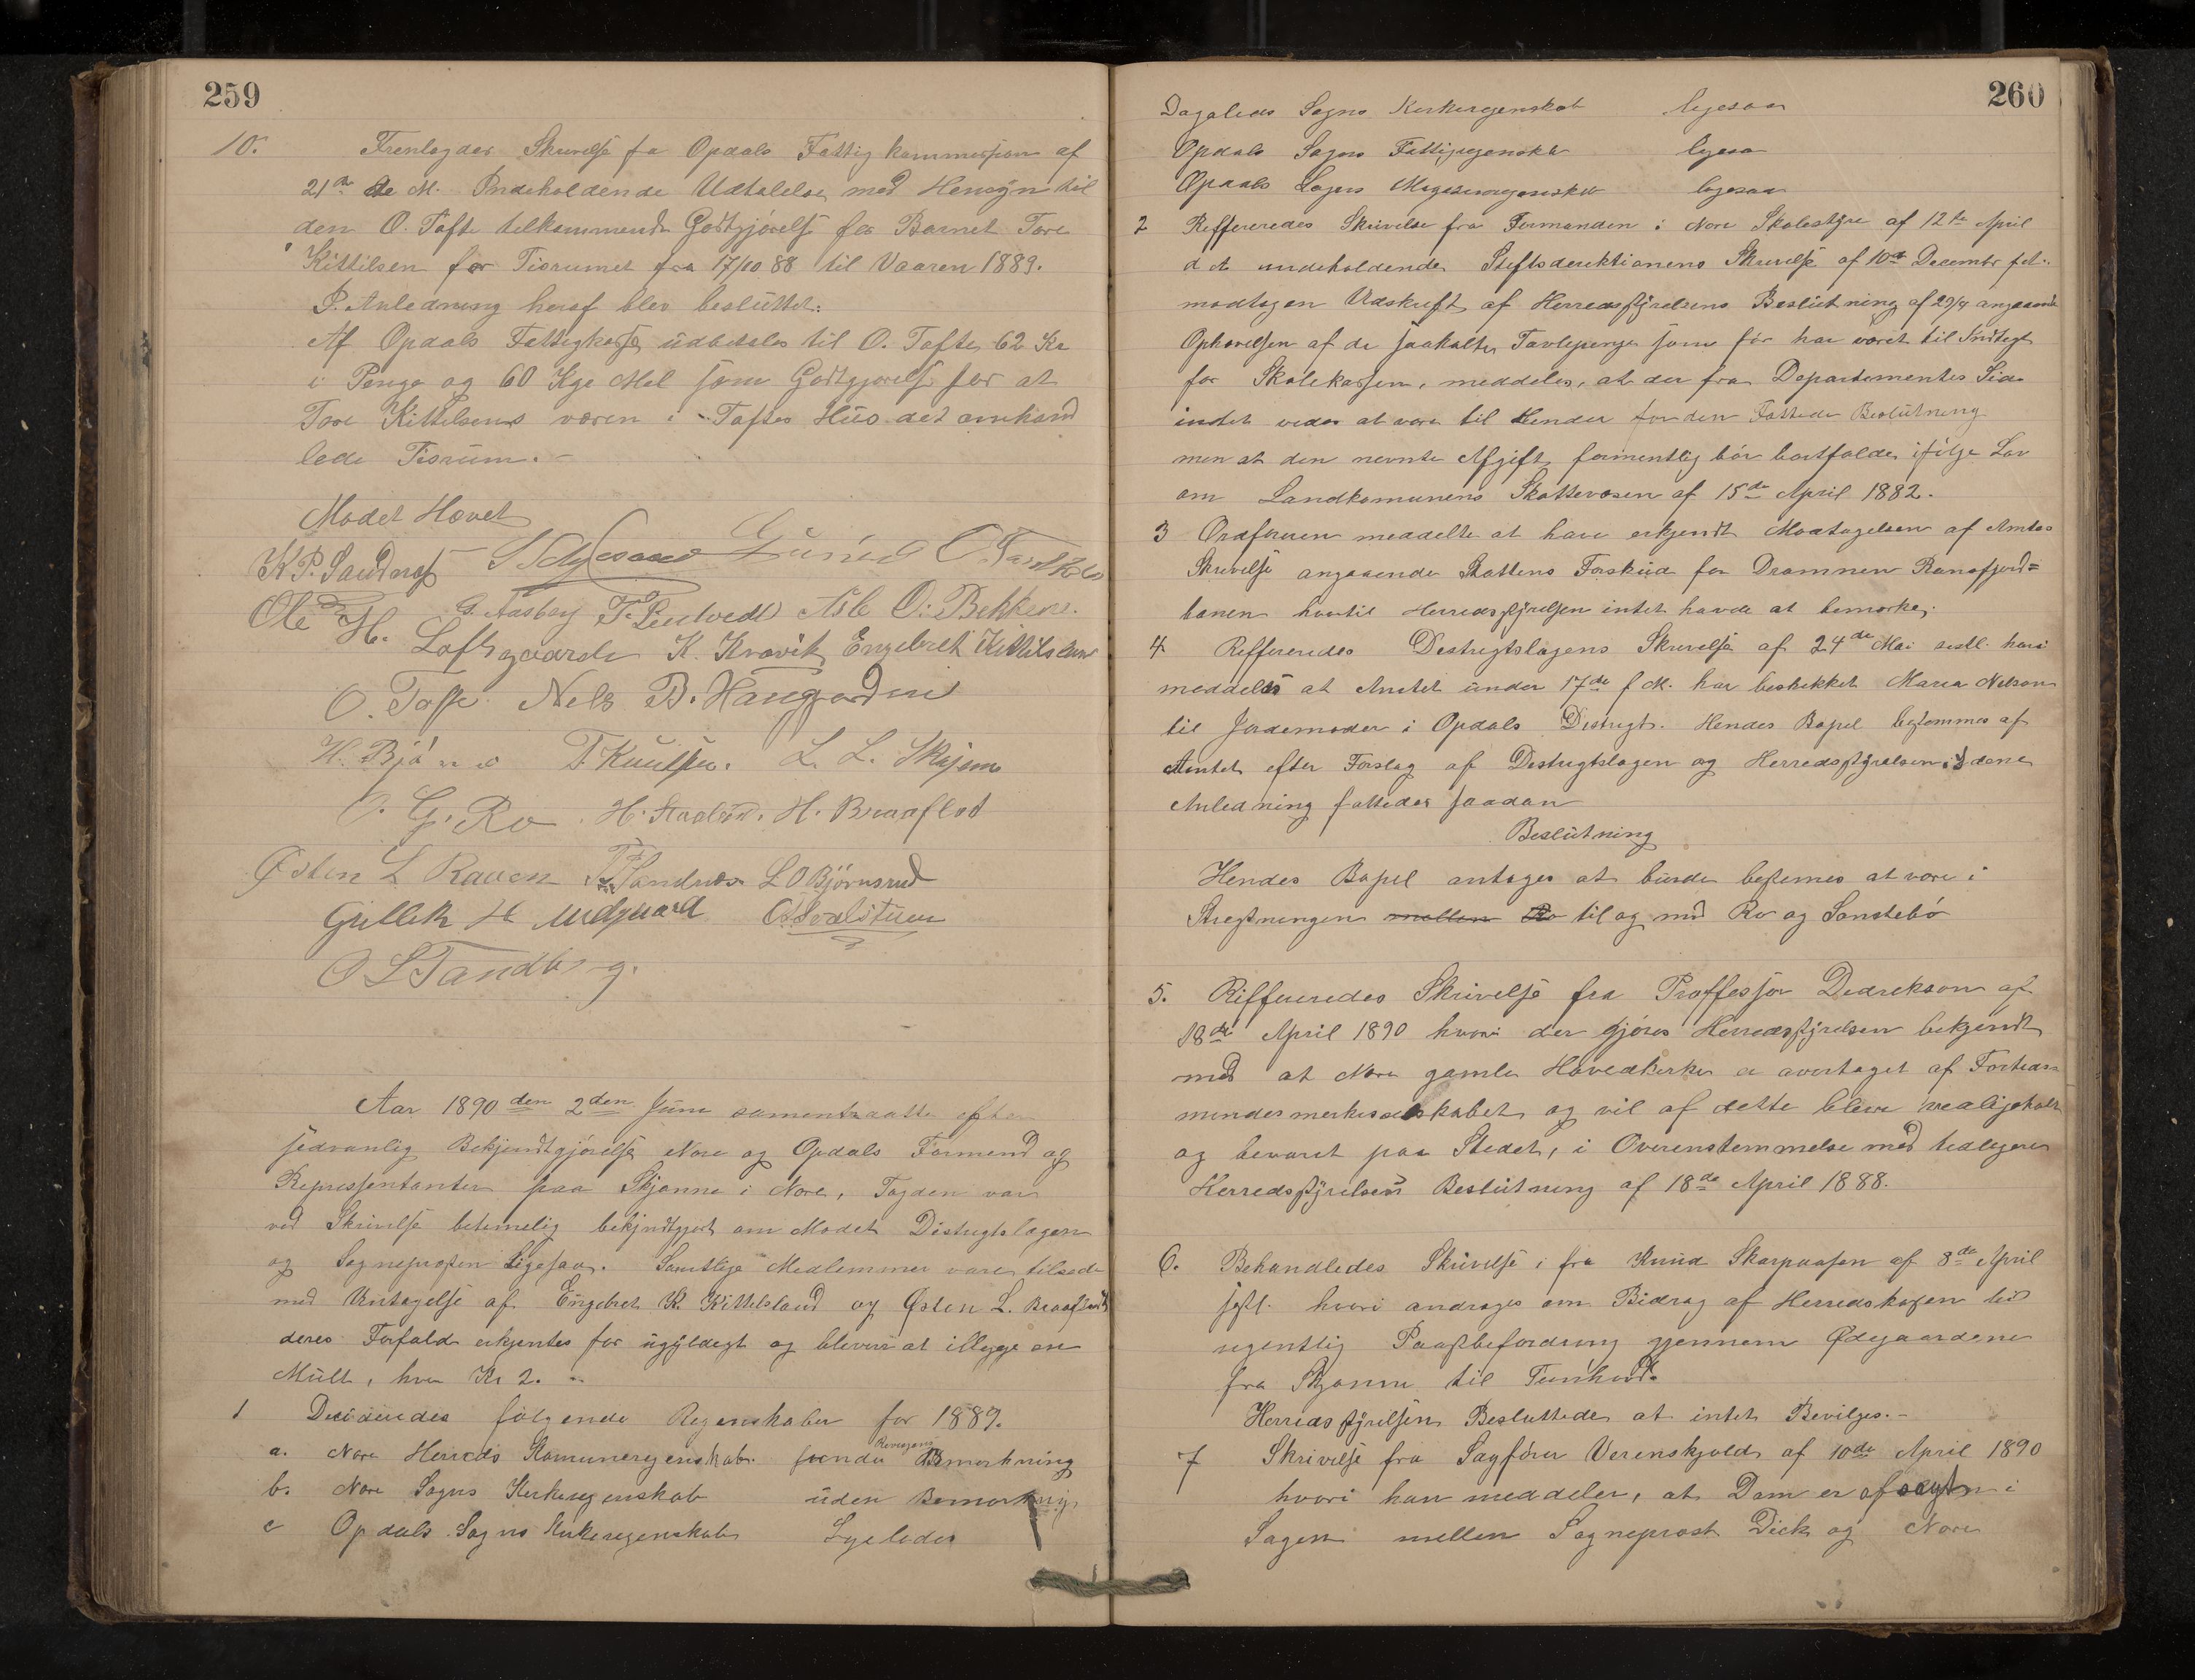 259
10. Fremlagdes Skrivelse fra Opdals Fattigkommission af
21de ds M. Indeholdende Udtalelse med Hensyn til
den O. Tofte tilkommende Godtgjørelse for Barnet Tore
Kittilsen for Tisrumet fra 17/10 88 til Vaaren 1889.
I Anledning heraf blev besluttet:
Af Opdals Fattigkasse udbetales til O. Tofte 62 Kr
i Penge og 60 Kge Mel som Godtgjørelse for at
Tore Kittelsens væren i Toftes Hus det omhand
lede Tisrum. -
Mødet Hævet
K P. Sandnes Gunnul O.
Ole H. G. Aasberg T. Asle O: Bekken.
Loftsgaarde K. Kravik Engebret Kittilsland
O. Tofte Nels B. Haugaardene
H. Bjø T Knutsen. L. L. Skjønne
O. G. Ro. H. H. Braaflod
Østen L Raaen T Sandnes L O Bjørnsrud
Gullik H Midgaard O
O L Tandberg.
Aar 1890 den 2den Juni sammentraatte efter
sedvanlig Bekjendtgjørelse Nore og Opdals Formend og
Representanter paa Skjønne i Nore, Fogden var
ved Skrivelse betimelig bekjndtgjort om Mødet Distrigtslægen
og Sogneprosten Ligesaa. Samtlige Medlemmer vare tilsede
med Untagelse af Engebret K. Kittelsland og Østen L.
deres Forfald erkjentes for ugyldigt og bleve at illegge en
Mult, hver Kr 2. -
1 Desideredes følgende Regenskaber for 1889.
a. Nore Herreds Komuneregenskab. Revisions Bemerkning
b. Nore Sogns Kirkeregenskab uden Bemerkning.
c Opdals Sogns Kirkeregenskab Lgeledes
260
Dagalieds Sogns Kirkeregenskab ligesaa
Opdals Sogns Fattigregenskab ligesaa
Opdals Sogns Magasinregenskab ligesaa
2 Reffereredes Skrivelse fra Formanden i Nore Skolestyre af 12te April
d A indeholdende Stiftsdirektionens Skrivelse af 10de Decembr
modtagen Udskrift af Herredsstyrelsens Beslutning af 29/4 angaaende
Ophævelsen af de saakalte Tavlepenge som før har været til Indtegt
for Skolekassen, meddeles, at der fra Departementes Side
intet vides at være til Hinder for den Fattede Beslutning
men at den nevnte Afgift formentlig bør bortfalde ifølge Lov
om Landkomunens Skattevæsen af 15de April 1882.
3 Ordføreren meddelte at have erkjendt Modtagelsen af Amtes
Skrivelse angaaende Stattens Forskud for Dramnen Ransfjord=
banen hvortil Herredsstyrelsen intet havde at bemerke.
4 Reffereredes Destrigtslægens Skrivelse af 24de Mai sistl. hvori
meddeles at Amtet under 17de f M. har beskikket Maria Nelson
til Jordemoder i Opdals Distrigt. Hendes Bopel bestemmes af
Amtet efter Forslag af Destrigtslægen og Herredsstyrelsen. I dene
Anledning fattedes saadan
Beslutning
Hendes Bopel antages at burde bestemes at være i
Stregningen mellem Ro til og med Ro og Sønstebø
5. Riffereredes Skrivelse fra Proffessor Dedrekson af
18de April 1890 hvori der gjøres Herredsstyrelsen bekjendt
med at Nore gamle Hovedkirke er overtaget af Fortids
mindesmerkeselskabet og vil af dette blive vedligeholdt
og bevaret paa Stedet, i Overenstemmelse med tidligere
Herredsstyrelsens Beslutning af 18de April 1888.
6. Behandledes Skrivelse i fra Knud Skarpaasen af 8de April
sistl. hvori andrages om Bidrag af Herredskassen til
ugentlig Paastbefordring gjennem Ødegaardene
fra Skjønne til Tunhovd.
Herredsstyrelsen Besluttede at intet Bevilges. -
7 Skrivelse fra Sagfører Verenskjold af 10de April 1890
hvori han meddeler, at Dom er afsagt i
Sagen mellem Sogneprost Dick og Nore